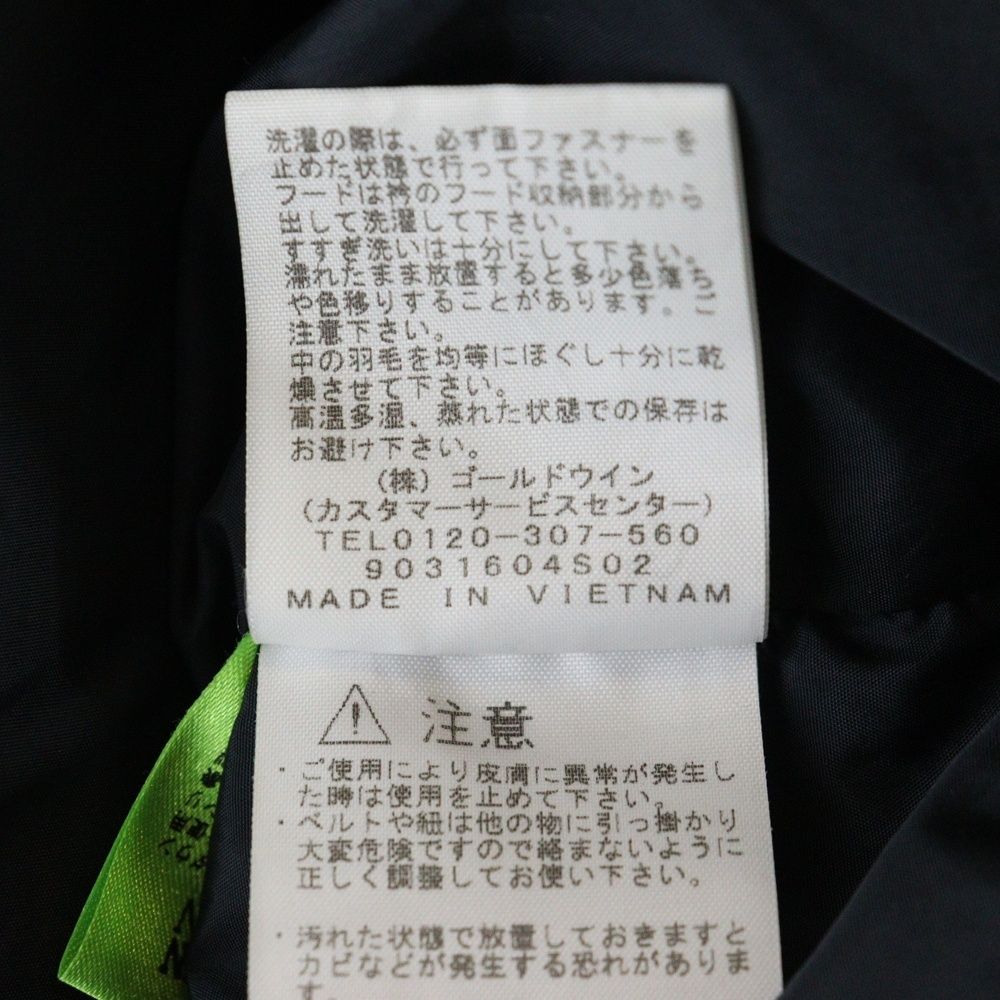 洗濯の際は、必ず面ファスナーを
止めた状態で行って下さい。
フードは衿のフード収納部分から
出して洗濯して下さい。
すすぎ洗いは十分にして下さい。
濡れたまま放置すると多少色落ち
や色移りすることがあります。ご
注意下さい。
中の羽毛を均等にほぐし十分に乾
燥させて下さい。
高温多湿、蒸れた状態での保存は
お避け下さい。
(株)ゴールドウイン
(カスタマーサービスセンター)
TEL0120-307-560
9031604S02
MADE IN VIETNAM
注意
・ご使用により皮膚に異常が発生し
た時は使用を止めて下さい。
・ベルトや紐は他の物に引っ掛かり
大変危険ですので絡まないように
正しく調整してお使い下さい。
・汚れた状態で放置しておきますと
カビなどが発生する恐れがありま
す。